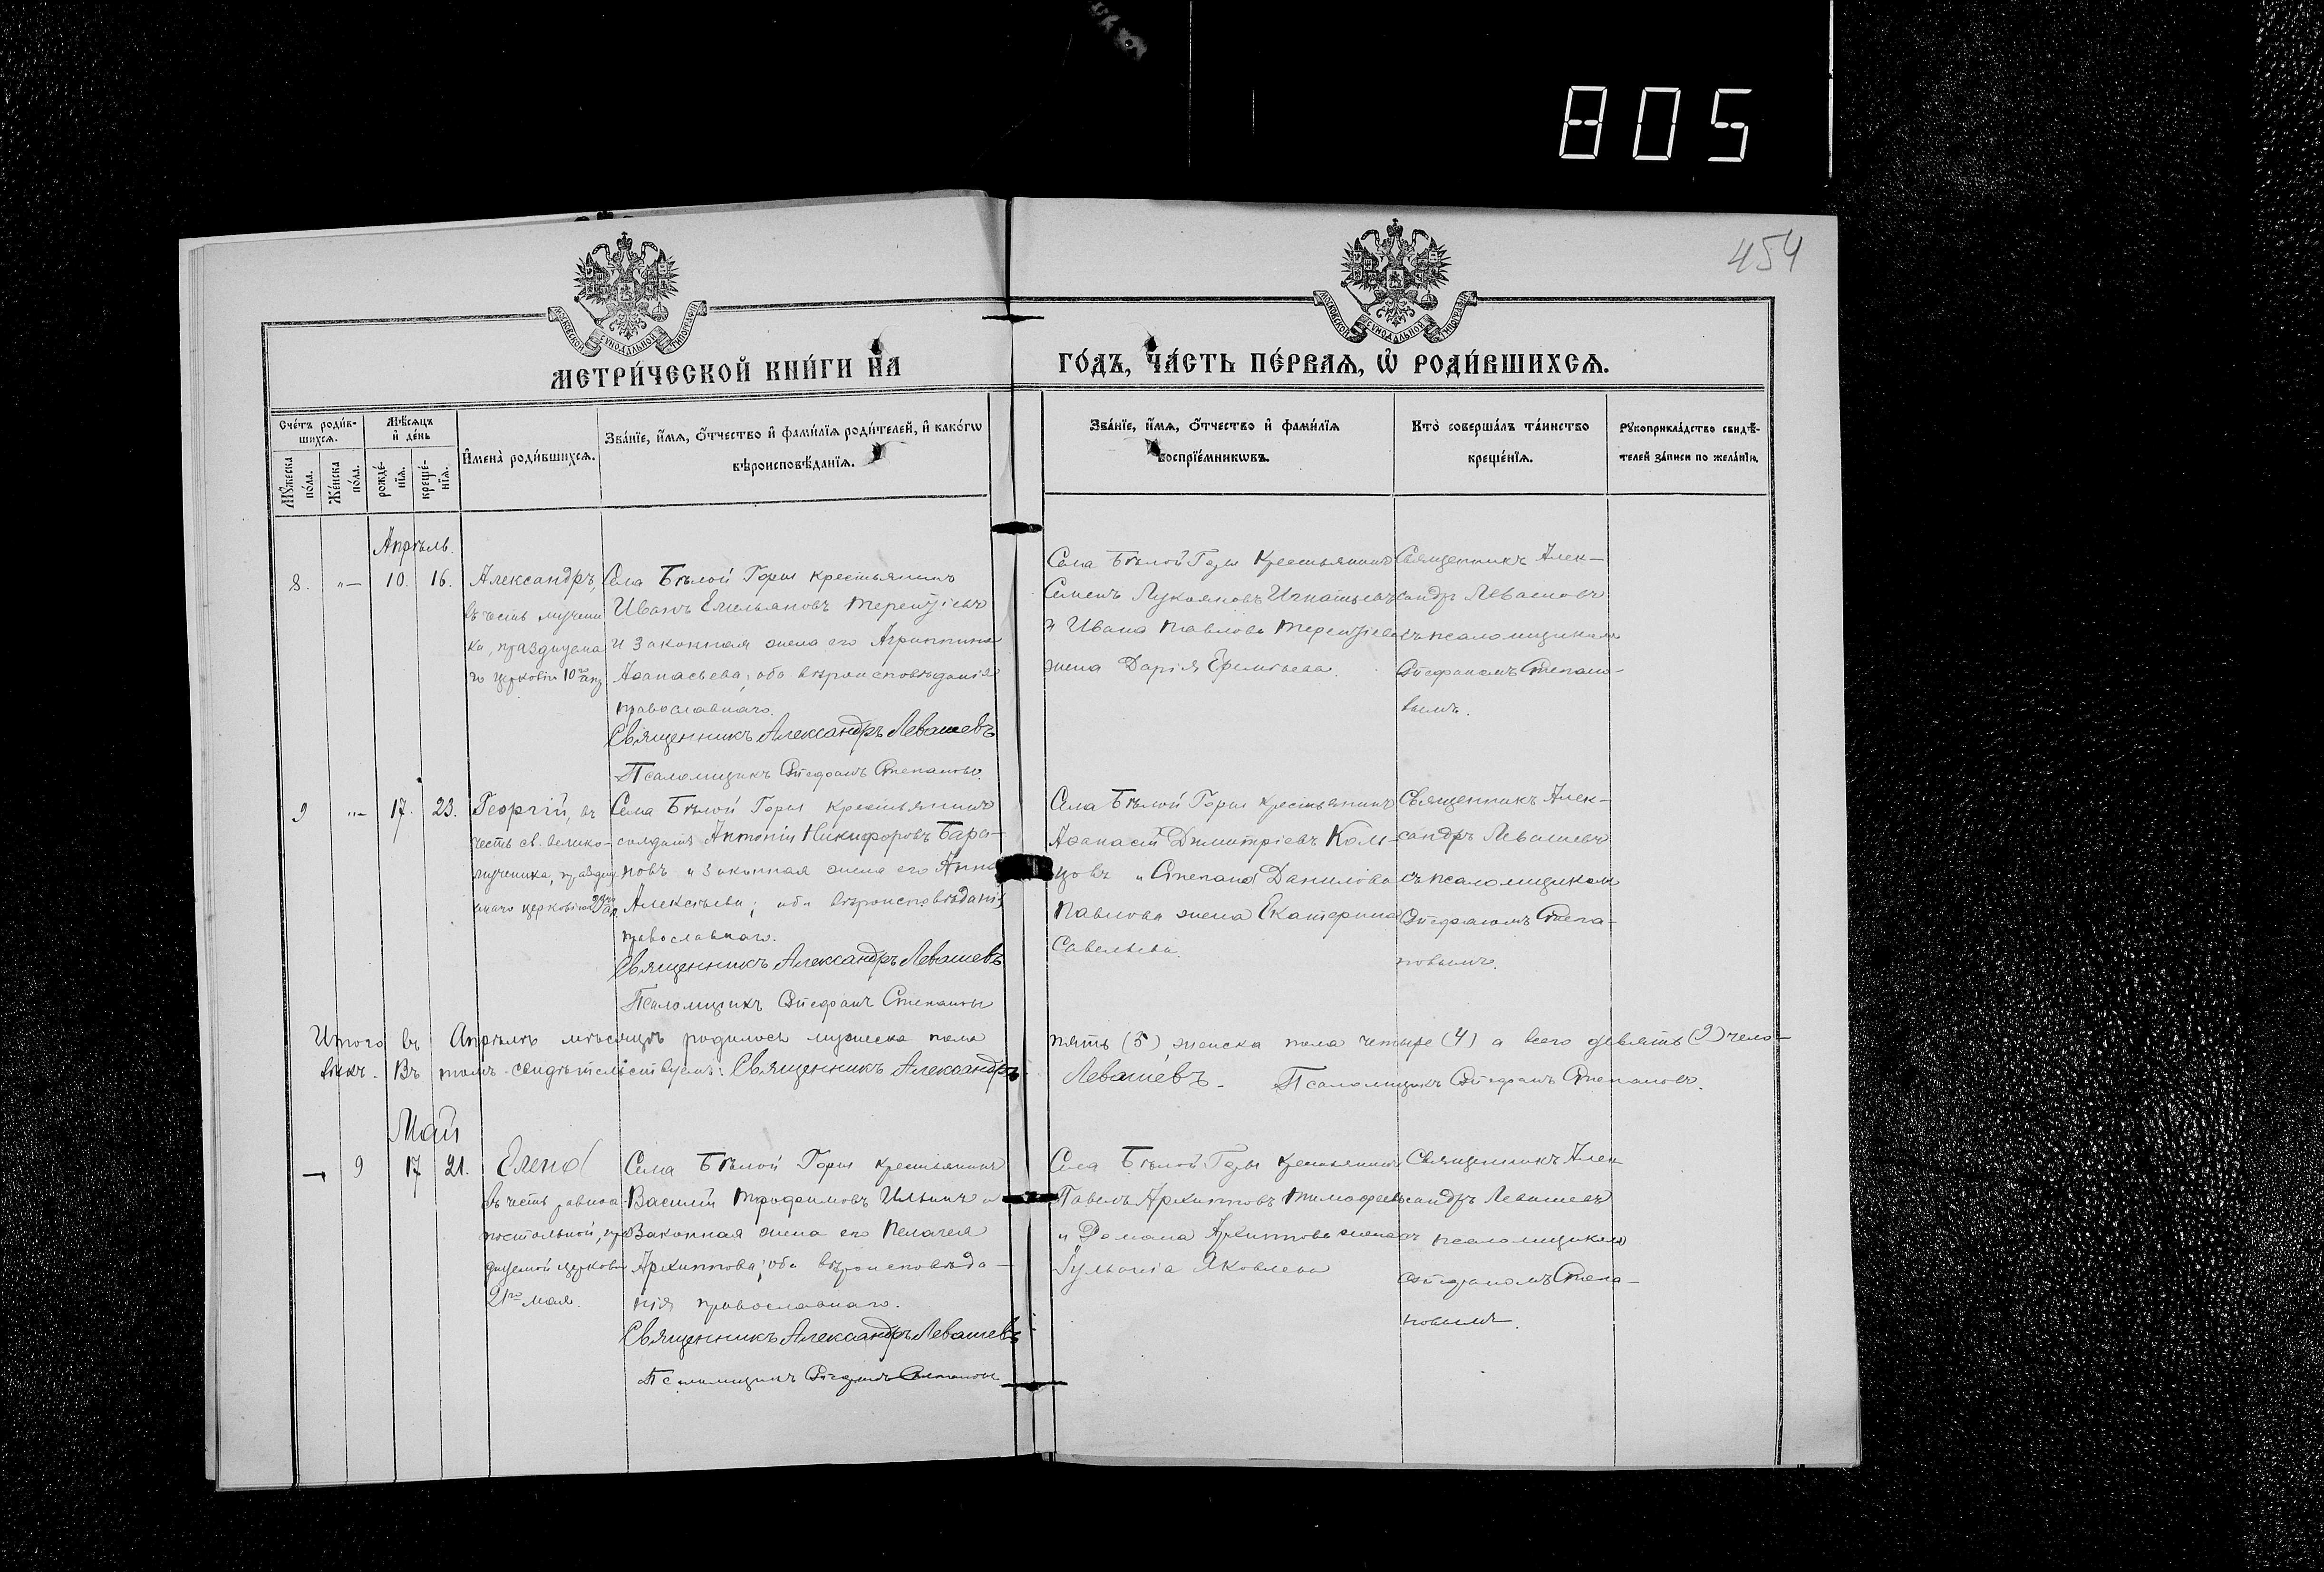 805
454
МОСКОВСКОЙ СѴНОДАЛЬНОЙ ТИПОГРАФІИ
МОСКОВСКОЙ СѴНОДАЛЬНОЙ ТИПОГРАФІИ
МЕТРИ́ЧЕСКОЙ КНИ́ГИ НА ГО́ДЪ, ЧА́СТЬ ПЕ́РВАѦ, Ѡ҆ РОДИ́ВШИХСѦ.
Сче́тъ роди́в-
шихсѧ.
Мꙋ́жеска
по́ла.
Же́нска
по́ла.
Мѣ́сѧцъ
и҆ де́нь
рожде́-
нїѧ.
креще́-
нїѧ.
И҆мена̀ роди́вшихсѧ.
Зва́нїе, и҆́мѧ, ѻ҆́тчество и҆ фами́лїѧ роди́телей, и҆ како́гѡ
вѣроисповѣ́данїѧ.
Зва́нїе, и҆́мѧ, ѻ҆́тчество и҆ фами́лїѧ
воспрїе́мникѡвъ.
Кто̀ соверша́лъ та́инство
креще́нїѧ.
Рꙋкоприкла́дство свидѣ́-
телей за́писи по жела́нїю.
Апрѣль.
8. "— 10. 16.
Александръ,
въ честь мучени
ка, празднуема
го церковію 10го апр
Села Бѣлой Горы крестьянинъ
Иванъ Емельяновъ Терентьевъ
и законная жена его Агриппина
Аѳанасьева; оба вѣроисповѣданія
православнаго.
Священникъ Александръ Левашевъ
Псаломщикъ Стефанъ Степановъ.
Села Бѣлой Горы крестьянинъ
Семенъ Лукояновъ Игнатьевъ
и Ивана Павлова Терентьева
жена Дарія Ефимьева.
Священникъ Алек-
сандръ Левашевъ
съ псаломщикомъ
Стефаномъ Степано-
вымъ.
9 "— 17. 23.
Георгій, въ
честь св. велико-
мученика, праздну
емаго церковію 23го ап
Села Бѣлой Горы крестьянинъ
солдатъ Антоній Никифоровъ Бара-
новъ и законная жена его Анна
Алексѣева; оба вѣроисповѣданія
православнаго.
Священникъ Александръ Левашевъ
Псаломщикъ Стефанъ Степановъ
Села Бѣлой Горы крестьянинъ
Аѳанасій Димитріевъ Коль-
цовъ и Степана Данилова
Павлова жена Екатерина
Савельева.
Священникъ Алек-
сандръ Левашевъ
съ псаломщикомъ
Стефаномъ Степа-
новымъ.
Итого въ Апрѣлѣ мѣсяцѣ родилось мужеска пола пять (5), женска пола четыре (4) а всего девять (9) чело-
вѣкъ. Въ томъ свидѣтельствуемъ: Священникъ Александръ Левашевъ. Псаломщикъ Стефанъ Степановъ.
Май
— 9 17 21.
Елена
въ честь равноа-
постольной, пра
днуемой церковію
21го мая.
Села Бѣлой Горы крестьянинъ
Василій Трофимовъ Ильинъ и
законная жена его Пелагея
Архиппова; оба вѣроисповѣда-
нія православнаго.
Священникъ Александръ Левашевъ
Псаломщикъ Стефанъ Степановъ
Села Бѣлой Горы крестьянинъ
Павелъ Архипповъ Тимофеевъ
и Романа Архиппова жена
Гульянія Яковлева
Священникъ Алек
сандръ Левашевъ
съ псаломщикомъ
Стефаномъ Степа-
новымъ.